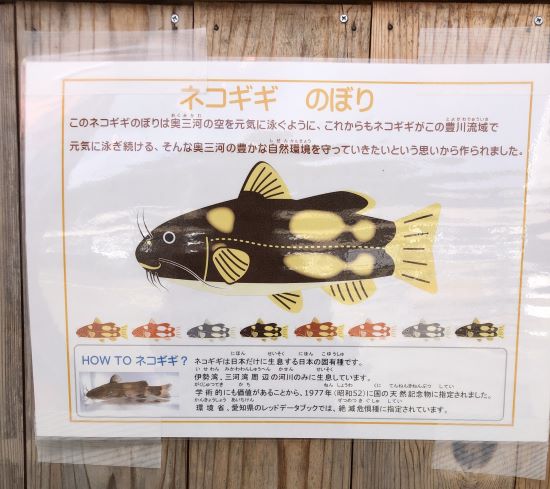 ネコギギ のぼり
このネコギギのぼりは奥三河の空を元気に泳ぐように、これからもネコギギがこの豊川流域で
元気に泳ぎ続ける、そんな奥三河の豊かな自然環境を守っていきたいという思いから作られました。
HOW TO ネコギギ?
ネコギギは日本だけに生息する日本の固有種です。
伊勢湾、三河湾周辺の河川のみに生息しています。
学術的にも価値があることから、1977年(昭和52)に国の天然記念物に指定されました。
環境省、愛知県のレッドデータブックでは、絶滅危惧種に指定されています。